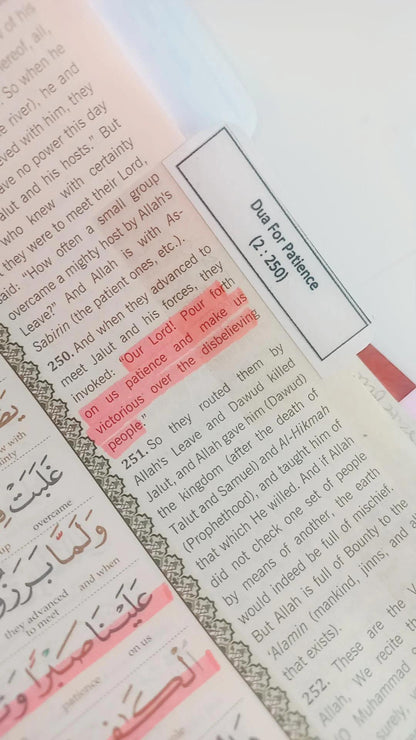 of his
thereof, all,
So when he
river), he and
with him, they
have no power this day
Jalut and his hosts." But
who knew with certainty
they were to meet their Lord,
said: "How often a small group
overcame a mighty host by Allah's
Leave?" And Allah is with As-
Sabirin (the patient ones, etc.).
250. And when they advanced to
meet Jalut and his forces, they
invoked: "Our Lord! Pour forth
on us patience and make us
victorious over the disbelieving
people."
251. So they routed them by
Allah's Leave and Dawud killed
Jalut, and Allah gave him (Dawud)
the kingdom (after the death of
Talut and Samuel) and Al-Hikmah
(Prophethood), and taught him of
that which He willed. And if Allah
did not check one set of people
by means of another, the earth
would indeed be full of mischief.
But Allah is full of Bounty to the
'Alamin (mankind, jinns, and
that exists).
252. These are the
Allah. We recite
Muhammad
surely,
Dua For Patience
(2 : 250)
with
غَلَبَتْ
overcame
up
وَلَمَّا بَرَزُوا
and when
they advanced
to meet
عَلَيْنَا صَبْرًا
on us
patience